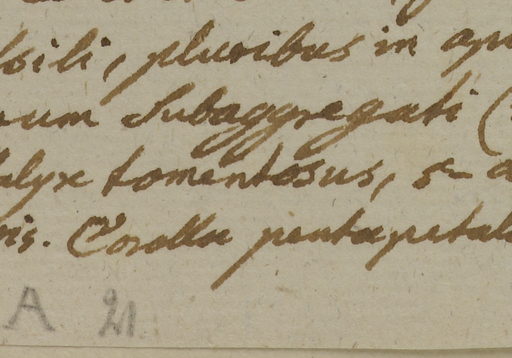 sili, pluribus in ap
rum subaggregati (
alyx tomentosus, 5-
ris. Corolla pentapetal
A 21